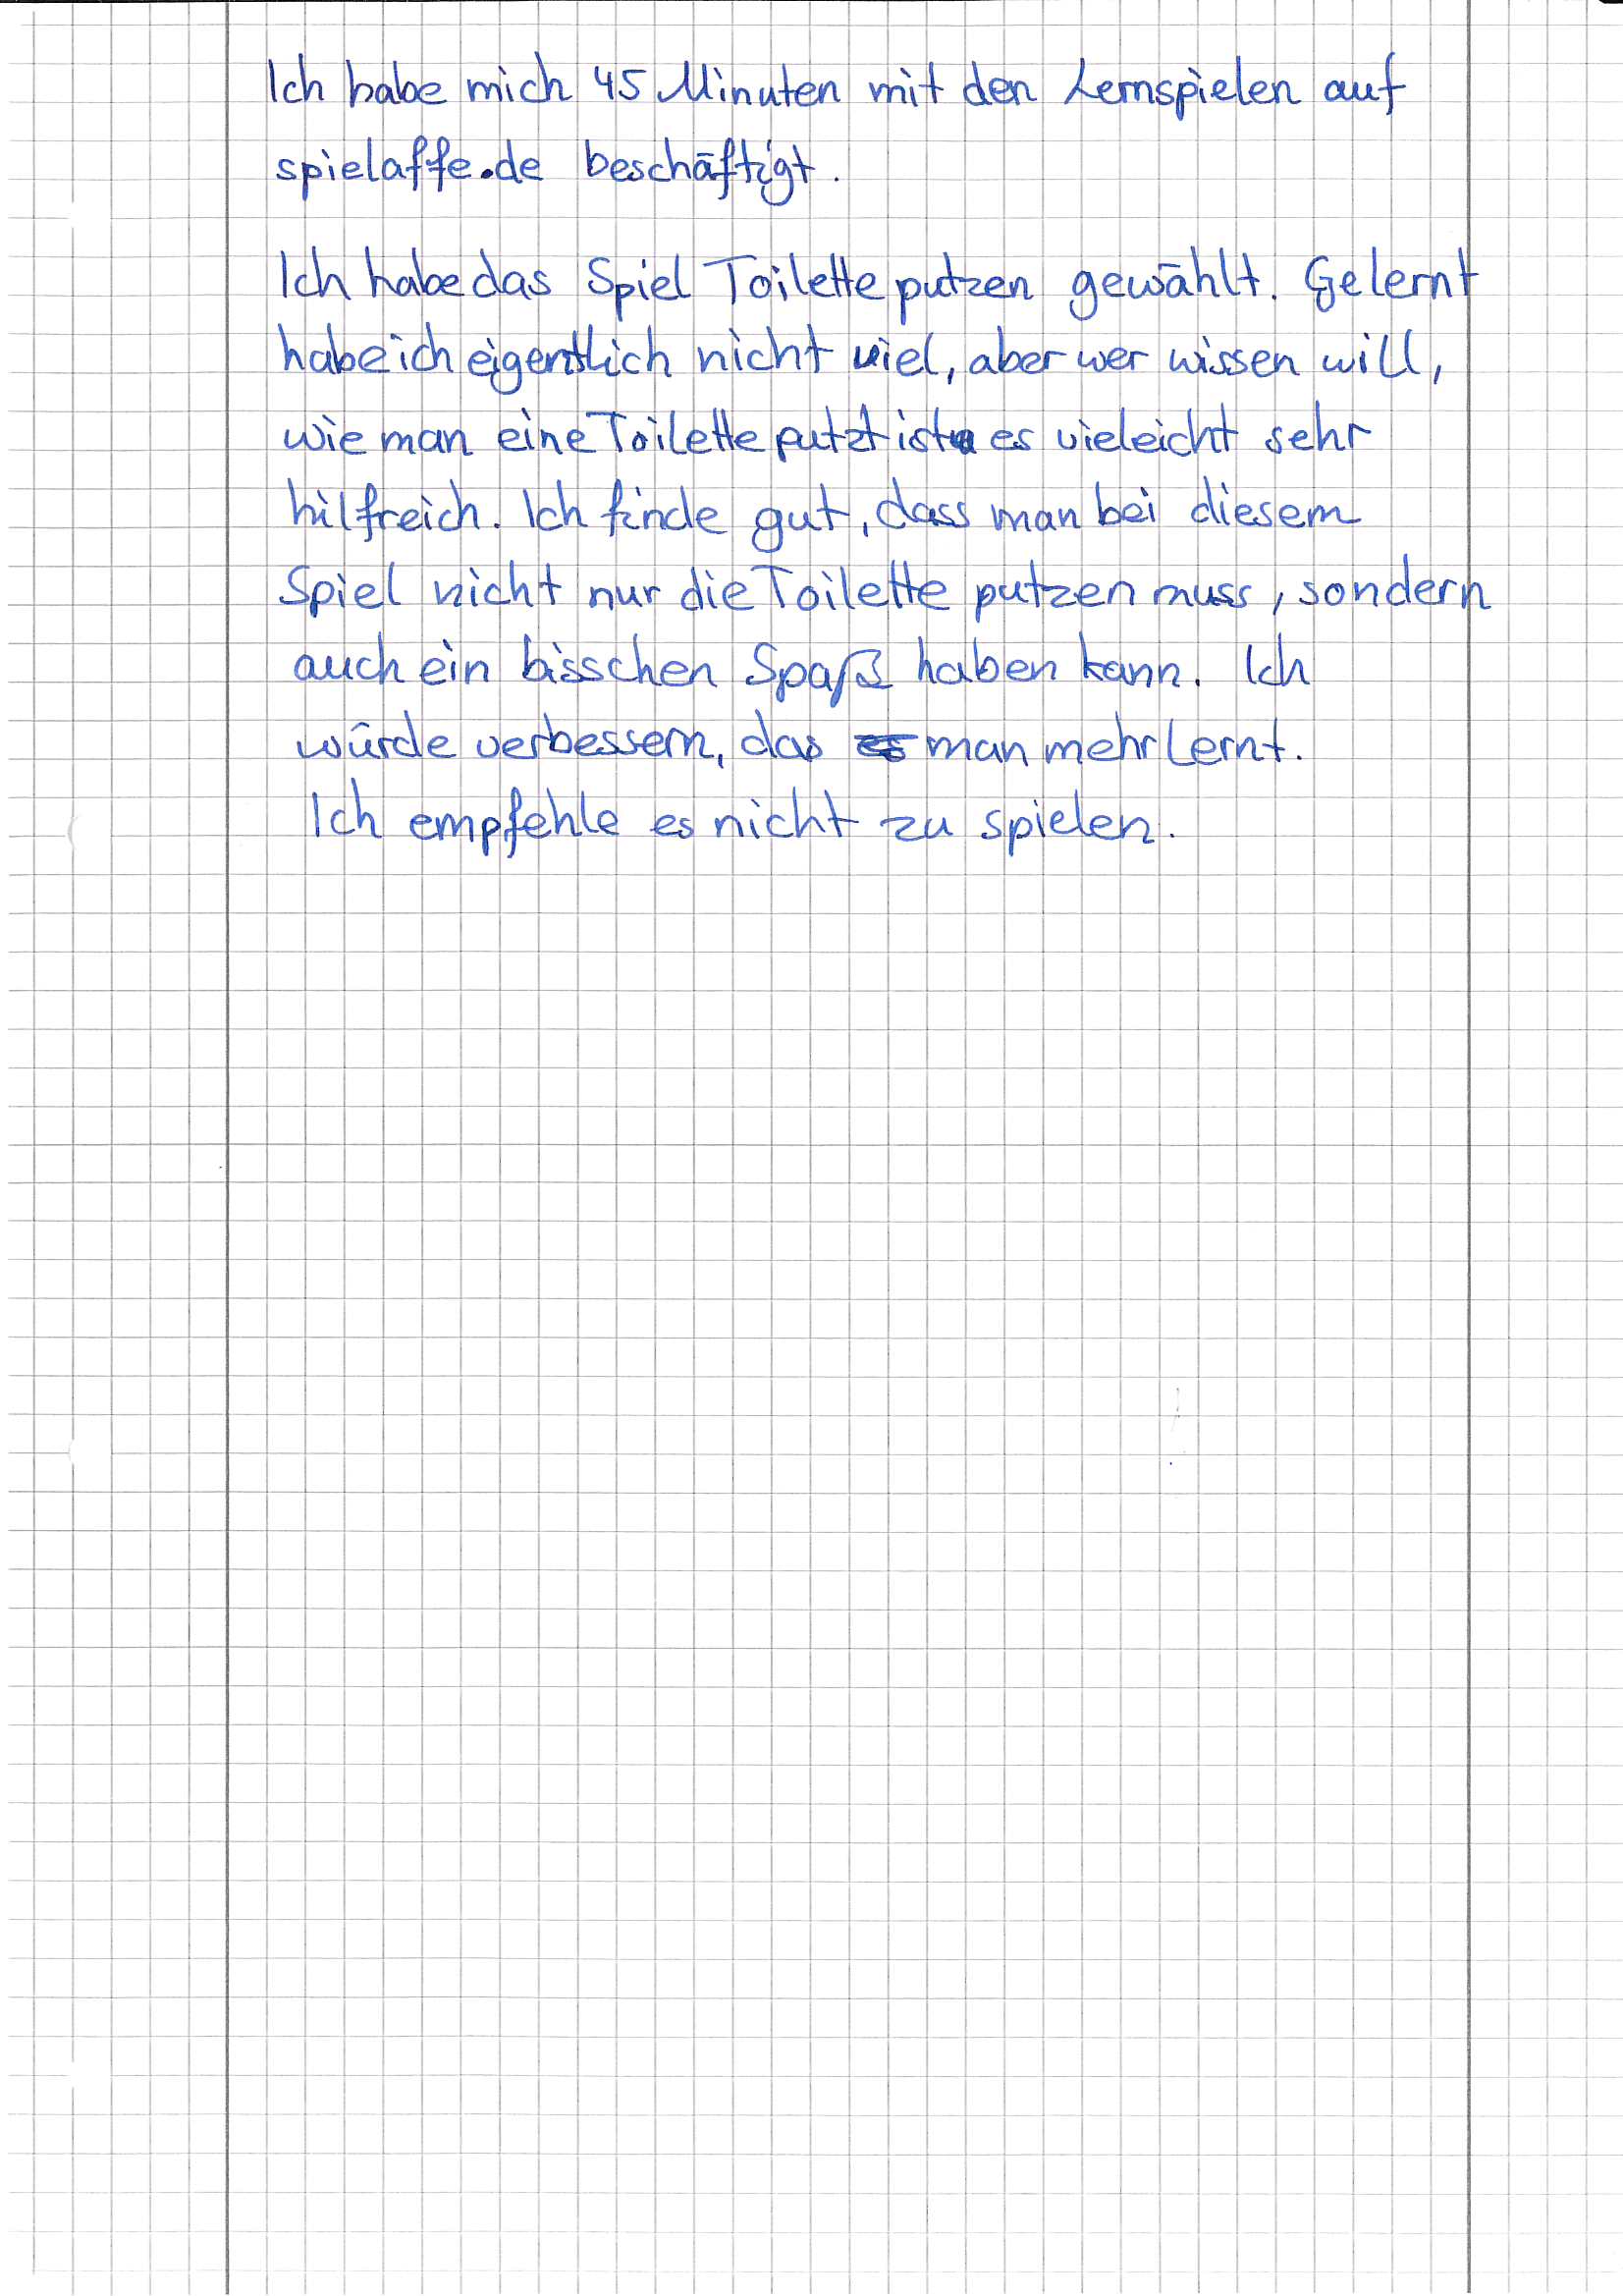 Ich habe mich 45 Minuten mit den Lernspielen auf
spielaffe.de beschäftigt.
Ich habe das Spiel Toilette putzen gewählt. Gelernt
habe ich eigentlich nicht viel, aber wer wissen will,
wie man eine Toilette putzt ist es vieleicht sehr
hilfreich. Ich finde gut, dass man bei diesem
Spiel nicht nur die Toilette putzen muss, sondern
auch ein bisschen Spaß haben kann. Ich
würde verbessern, das es man mehr lernt.
Ich empfehle es nicht zu spielen.